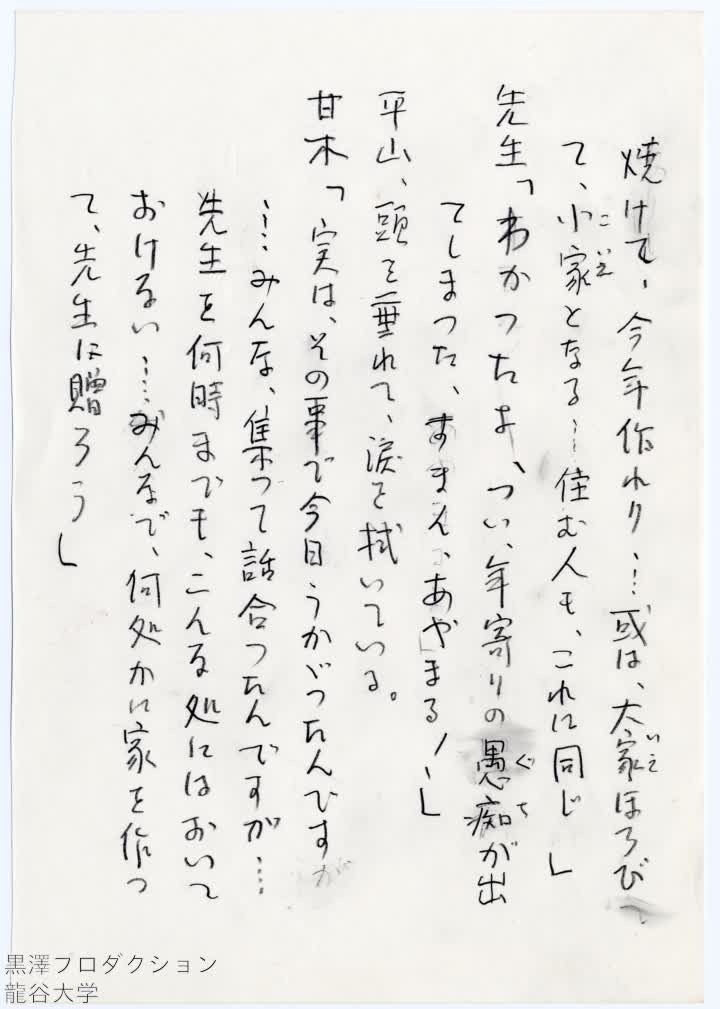 焼けて、今年作れり…或は、大家ほろび
て、小家となる…住む人も、これに同じ」
先生「わかつたよ、つい、年寄りの愚痴が出
てしまつた、すまん、あやまる！」
平山、頭を垂れて、涙を拭いている。
甘木「実は、その事で今日うかゞつたんですが
…みんな、集つて話合つたんですが…
先生を何時までも、こんな処にはおいて
おけない…みんなで、何処かに家を作つ
て、先生に贈ろう」
黒澤プロダクション
龍谷大学